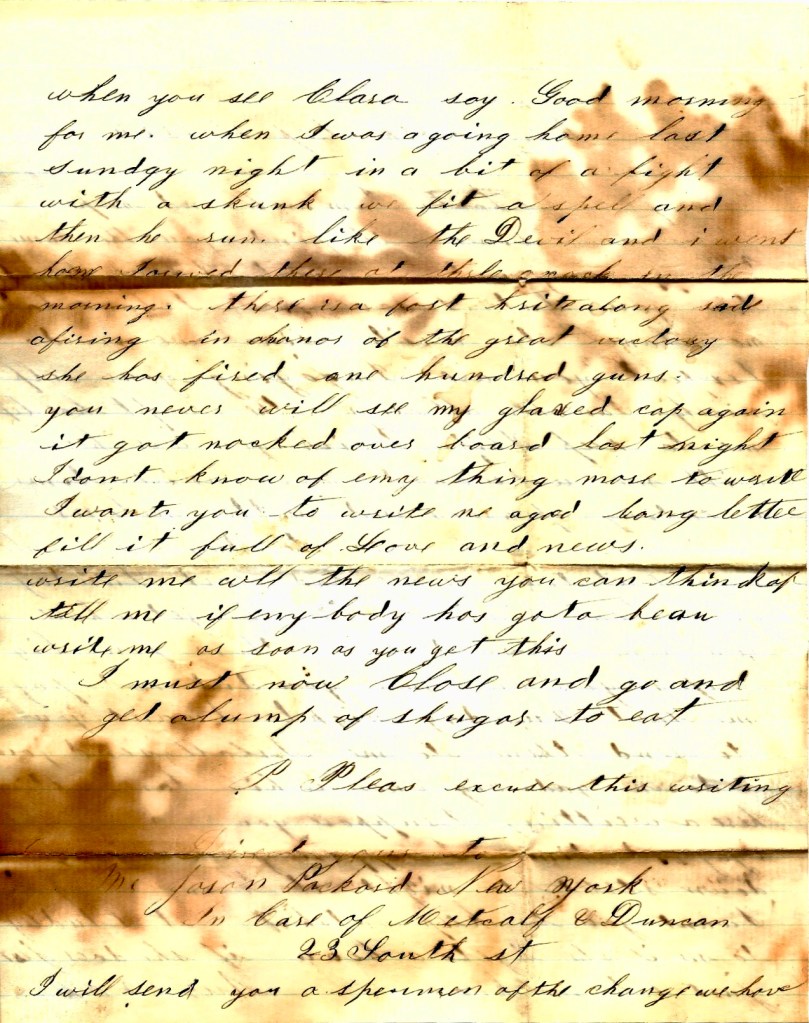 when you see Clara say. Good morning
for me. when I was agoing home last
sundgy night in a bit of a fight
with a skunk we fit a spell and
then he run. like the Devil and i went
home in the
morning. there is a
afiring in of the great victory
she has fired one hundred guns.
you never will see my glazed cap again
it got nocked over board last night
I dont know of eny thing more to write
I want you to write me agod long letter
fill it full of Love and news.
write me all the news you can think of
tell me if enybody has gota beau
write me as soon as you get this
I must now Close and go and
get alump of shugar to eat
P Pleas excuse this writing
to
Mr Jason Packard New York
In Care of Metcalf & Duncan
23 South st
I will send you a spesmen of the change we have